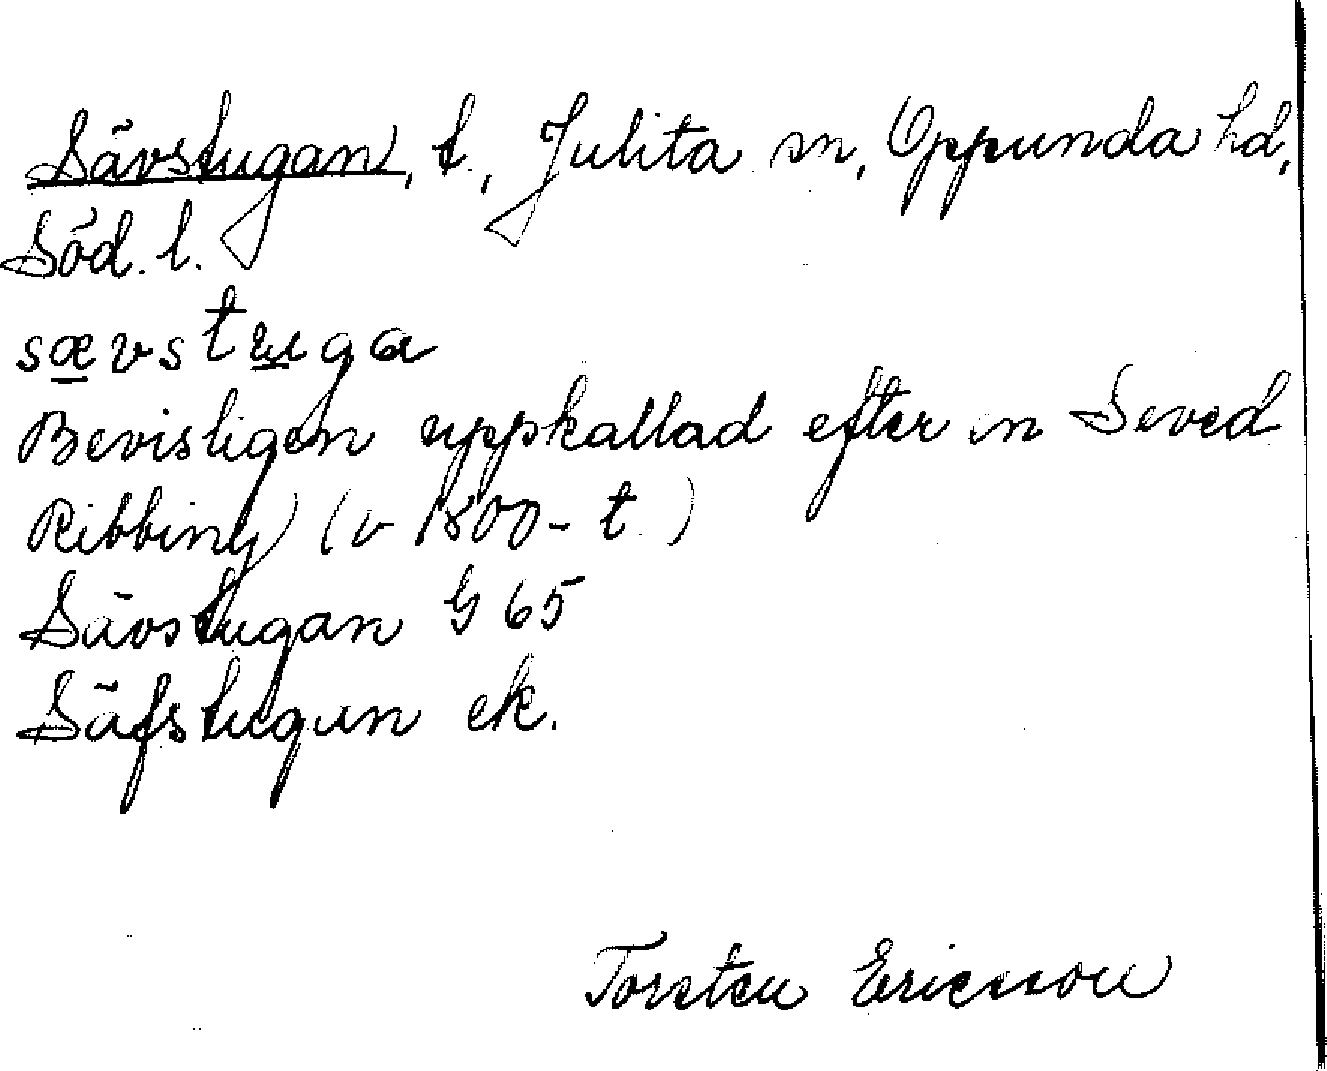 Sävstugan, t., Julita sn, Oppunda hd,
Söd. l.
sævstuga
Bevisligen uppkallad efter en Seved
Ribbing (v 1800-t.)
Sävstugan G 65
Säfstugun ek.
Torsten Ericsson